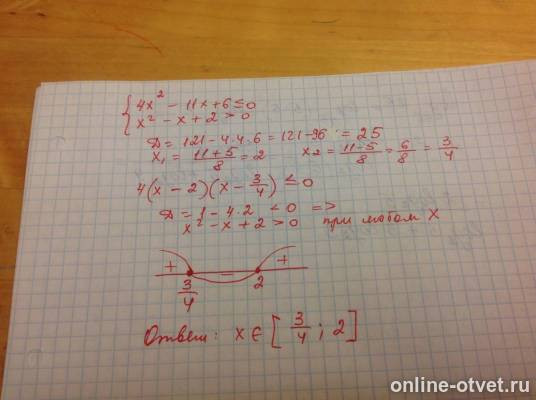 { 4x² - 11x + 6 ≤ 0
x² - x + 2 > 0
Д = 121 - 4·4·6 = 121 - 96 = 25
x₁ = (11+5)/8 = 2   x₂ = (11-5)/8 = 6/8 = 3/4
4(x - 2)(x - 3/4) ≤ 0
Д = 1 - 4·2 < 0 =>
x² - x + 2 > 0 при любом x
+ - +
3/4 2
Ответ: x ∈ [3/4; 2]
online-otvet.ru